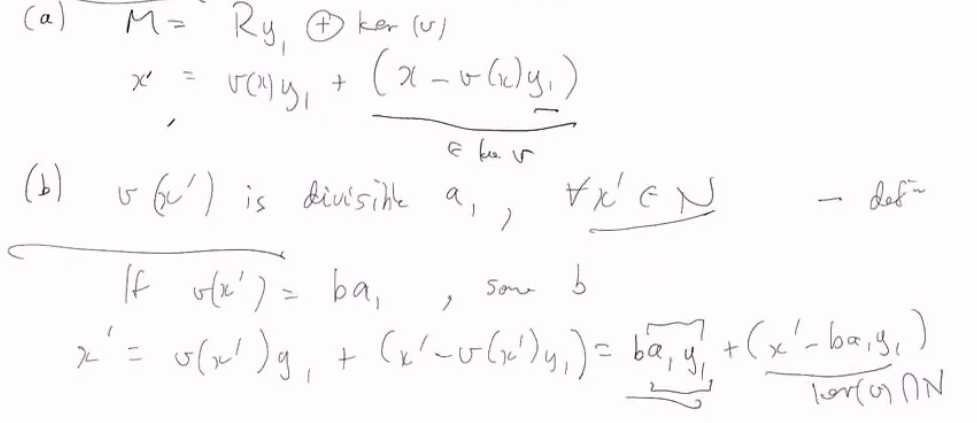 (a) M = Ry₁ ⊕ ker (v)
x' = v(x)y₁ + (x - v(x)y₁)
∈ ker v
(b) v(x') is divisible a₁, ∀x' ∈ N - defⁿ
If v(x') = ba₁, some b
x' = v(x')y₁ + (x' - v(x')y₁) = ba₁y₁ + (x' - ba₁y₁)
ker(v) ∩ N